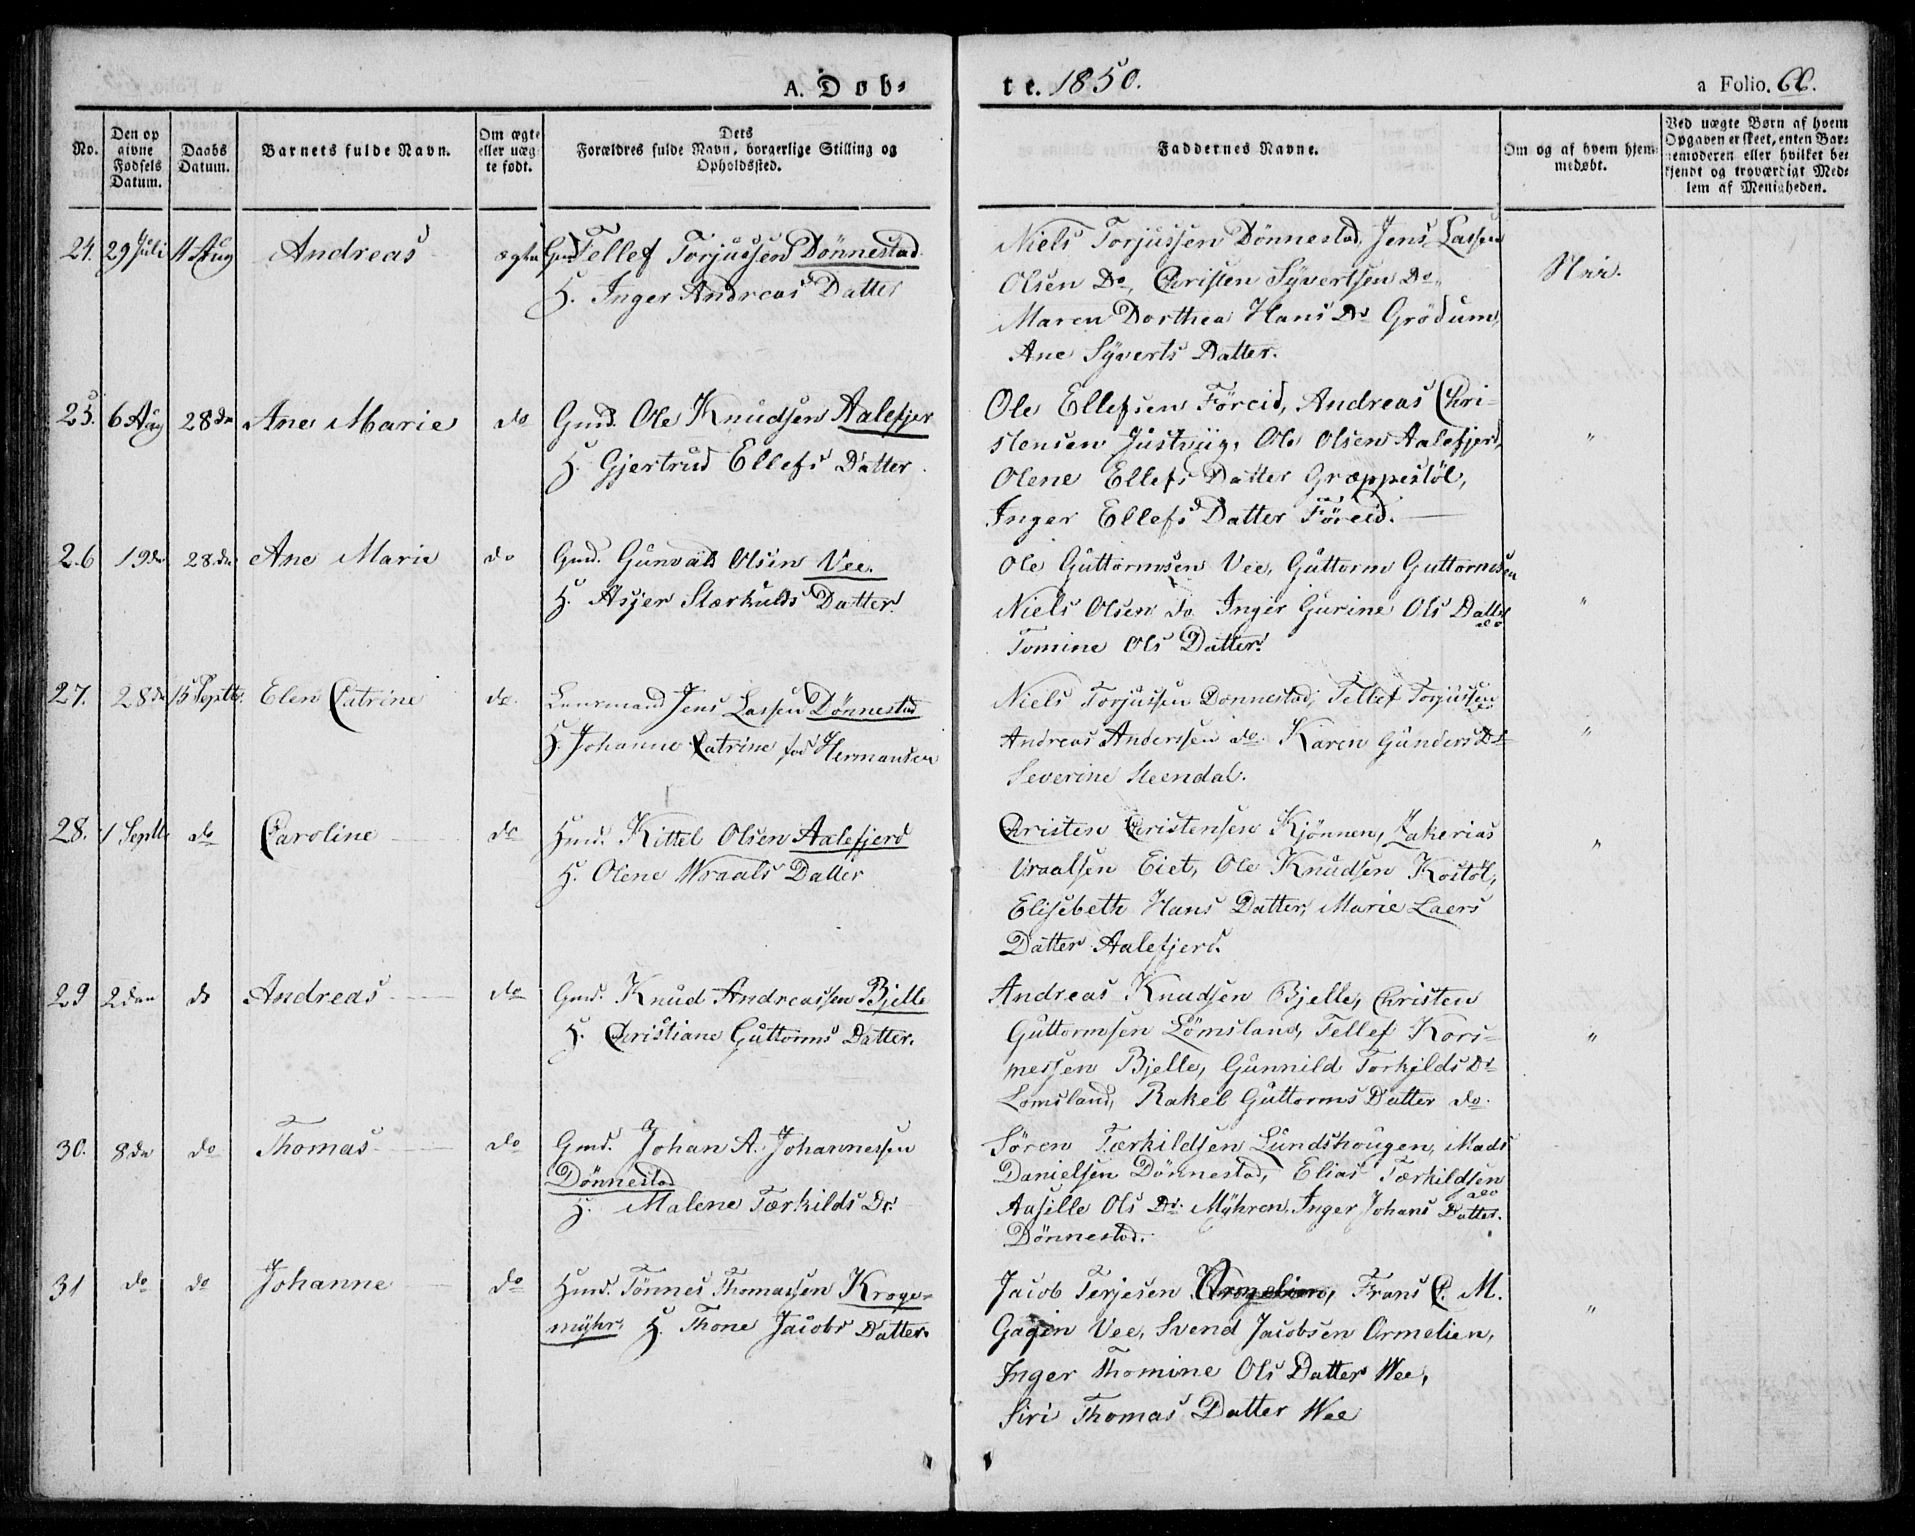 A. Døb-
te. 1850.
a Folio. 66.
No.
Den opgivne Fødsels Datum.
Daabs Datum.
Barnets fulde Navn.
Om ægte eller uægte født.
Dets Forældres fulde Navn, borgerlige Stilling og Opholdssted.
Faddernes Navne.
Om og af hvem hjemmedøbt.
Ved uægte Børn af hvem Opgaven er skeet, enten Barnemoderen eller hvilket bekjendt og troværdigt Medlem af Menigheden.
24. 29 Juli 11 Aug Andreas ægte Gmd Tellef Torjussen Dönnestad
H. Inger Andreas Datter
Niels Torjussen Dönnestad, Jens Lassen
Olsen Do, Christen Syvertsen Do,
Maren Dorthea Hans Dr Grödum,
Ane Syverts Datter.
25. 6 Aug 28 da Ane Marie do Gmd. Ole Knudsen Aalefjer
H. Gjertrud Ellefs Datter.
Ole Ellefsen Föreid, Andreas Chri-
stensen Justviig, Ole Olsen Aalefjerd,
Olene Ellefs Datter Græppestöl,
Inger Ellefs Datter Föreid.
"
26 19 da 28. da Ane Marie do Gmd. Gunvald Olsen Vee.
H. Asjer Stærkulds Datter.
Ole Guttormsen Vee, Guttorm Guttormsen
Niels Olsen do Inger Gurine Ols Datter
do
Tomine Ols Datter.
"
27. 28 da 15 Septbr. Elen Catrine do. Jens Lassen Dönnestad
H. Johanne Catrine fød Hermansen
Niels Torjussen Donnestad, Tellef Torjussen
Andreas Anderssen do. Karen Gunders Dr
Severine Steendal.
"
28. 1 Septb do Caroline do Hmd. Kittel Olsen Aalefjerd
H. Olene Wraals Datter
Christen Christensen Kjönnen, Zakerias
Vraalsen Eiet, Ole Knudsen Kostöl,
Elisebeth Hans Datter, Marie Laers
Datter Aalefjerd.
"
29 2 den do Andreas do Gmd. Knud Andreassen Bjelle
H. Christiane Guttorms Datter.
Andreas Knudsen Bjelle, Christen
Guttormsen Lömsland, Tellef Kors-
messen Bjelle, Gunnild Torkjelds Dr
Lomsland, Rakel Guttorms Datter do.
"
30. 8 da do Thomas do Gmd. Johan A. Johannessen
Dönnestad
H. Malene Tærkilds Dr.
Sören Tærkildsen Lundshougen, Mads
Danielsen Dönnestad, Elias Tærkildsen
do
Aasille Ols Dr. Myhren, Inger Johans Datter.
Dönnestad.
31 do do Johanne do Hmd. Tönnes Thomassen Kroge-
myhr. H. Thone Jacobs Datter.
Jacob Terjesen Frans C. M.
Gagen Vee, Svend Jacobsen Ormelien,
Inger Thomine Ols Datter Wee,
Siri Thomas Datter Wee
"